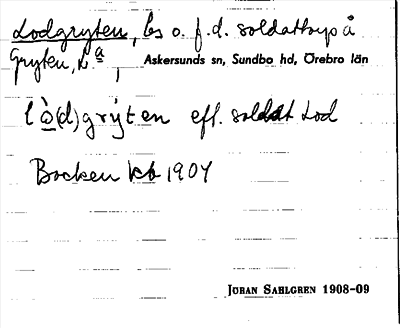 Lodgryten, ls o. f. d. soldattorp å
Gryten, L.ª, Askersunds sn, Sundbo hd, Örebro län
lò(d)grýten eft. soldat Lod
Bocken kb 1904
JÖRAN SAHLGREN 1908-09